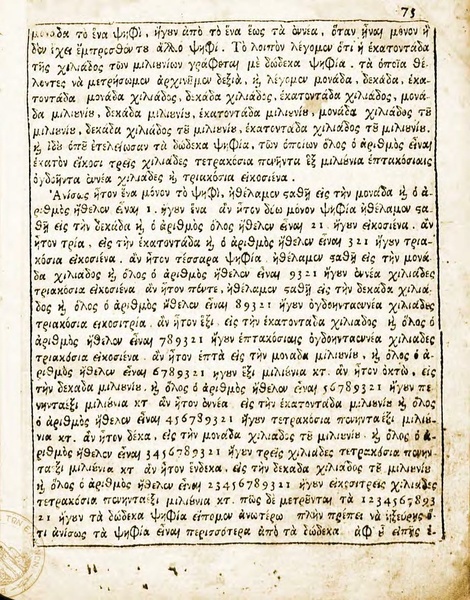 75
μονάδα τὸ ἕνα ψηφὶ, ἤγουν ἀπὸ τὸ ἕνα ἕως τὰ ἐννέα, ὅταν ἦναι μόνον ἢ
δὲν ἔχει ἔμπροσθέν του ἄλλο ψηφί. Τὸ λοιπὸν λέγομεν ὅτι ἡ ἑκατοντάδα
τῆς χιλιάδος τῶν μιλιουνίων γράφεται μὲ δώδεκα ψηφία. τὰ ὁποῖα θέ-
λοντες νὰ μετρήσωμεν ἀρχινοῦμεν δεξιὰ, ϗ λέγομεν μονάδα, δεκάδα, ἑκα-
τοντάδα μονάδα χιλιάδος, δεκάδα χιλιάδος, ἑκατοντάδα χιλιάδος, μονά-
δα μιλιουνίου, δεκάδα μιλιουνίου, ἑκατοντάδα μιλιουνίου, μονάδα χιλιάδος τοῦ
μιλιουνίου, δεκάδα χιλιάδος τοῦ μιλιουνίου, ἑκατοντάδα χιλιάδος τοῦ μιλιουνίου.
ϗ ἰδοὺ ὁποῦ ἐτελείωσαν τὰ δώδεκα ψηφία, τῶν ὁποίων ὅλος ὁ ἀριθμὸς εἶναι
ἑκατὸν εἴκοσι τρεῖς χιλιάδες τετρακόσια πενῆντα ἓξ μιλιούνια ἑπτακόσιαις
ὀγδοῆντα ἐννέα χιλιάδες ϗ τριακόσια εἰκοσιένα.
Ἀνίσως ἦτον ἕνα μόνον τὸ ψηφὶ, ἠθέλαμεν σταθῆ εἰς τὴν μονάδα ϗ ὁ ἀ-
ριθμὸς ἤθελεν εἶναι 1. ἤγουν ἕνα ἂν ἦτον δύω μόνον ψηφία ἠθέλαμεν στα-
θῆ εἰς τὴν δεκάδα ϗ ὁ ἀριθμὸς ὅλος ἤθελεν εἶναι 21 ἤγουν εἰκοσιένα. ἂν
ἦτον τρία, εἰς τὴν ἑκατοντάδα ϗ ὁ ἀριθμὸς ἤθελεν εἶναι 321 ἤγουν τρια-
κόσια εἰκοσιένα. ἂν ἦτον τέσσαρα ψηφία. ἠθέλαμεν σταθῆ εἰς τὴν μονά-
δα χιλιάδος ϗ, ὅλος ὁ ἀριθμὸς ἤθελεν εἶναι 9321 ἤγουν ἐννέα χιλιάδες
τριακόσια εἰκοσιένα ἂν ἦτον πέντε, ἠθέλαμεν σταθῆ εἰς τὴν δεκάδα χιλιά-
δος ϗ, ὅλος ὁ ἀριθμὸς ἤθελεν εἶναι 89321 ἤγουν ὀγδονταεννέα χιλιάδες
τριακόσια εἰκοσιτρία. ἂν ἦτον ἕξι. εἰς τὴν ἑκατοντάδα χιλιάδος ϗ ὅλος ὁ
ἀριθμὸς ἤθελεν εἶναι 789321 ἤγουν ἑπτακόσιαις ὀγδονταεννέα χιλιάδες
τριακόσια εἰκοσιένα. ἂν ἦτον ἑπτὰ εἰς τὴν μονάδα μιλιουνίου, ϗ ὅλος ὁ ἀ-
ριθμὸς ἤθελεν εἶναι 6789321 ἤγουν ἕξι μιλιούνια κτ. ἂν ἦτον ὀκτὼ, εἰς
τὴν δεκάδα μιλιουνίου. ϗ ὅλος ὁ ἀριθμὸς ἤθελεν εἶναι 56789321 ἤγουν πε
νηνταέξι μιλιούνια κτ ἂν ἦτον ἐννέα. εἰς τὴν ἑκατοντάδα μιλιουνίου, ϗ ὅλος
ὁ ἀριθμὸς ἤθελεν εἶναι 456789321 ἤγουν τετρακόσια πενηνταέξι μιλιού-
νια κτ. ἂν ἦτον δέκα, εἰς τὴν μονάδα χιλιάδος τοῦ μιλιουνίου. ϗ ὅλος ὁ ἀ-
ριθμὸς ἤθελεν εἶναι 3456789321 ἤγουν τρεῖς χιλιάδες τετρακόσια πενην-
ταέξι μιλιούνια κτ ἂν ἦτον ἕνδεκα. εἰς τὴν δεκάδα χιλιάδος τοῦ μιλιουνίου
ϗ ὅλος ὁ ἀριθμὸς ἤθελεν εἶναι 23456789321 ἤγουν εἰκοσιτρεῖς χιλιάδες
τετρακόσια πενηνταέξι μιλιούνια κτ. πῶς δὲ μετροῦνται τὰ 1234567893
21 ἤγουν τὰ δώδεκα ψηφία εἴπομεν ἀνωτέρω πλὴν πρέπει νὰ ἠξεύρῃς ὅ-
τι ἀνίσως τὰ ψηφία εἶναι περισσότερα ἀπὸ τὰ δώδεκα. ἀφ' οὗ εἰπῇς ἑ-